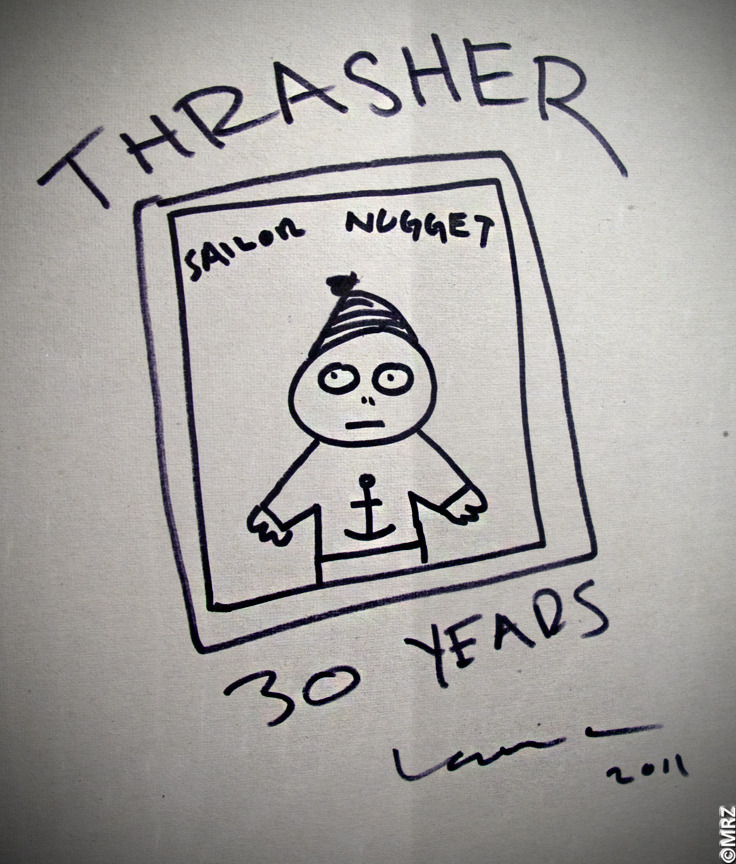 THRASHER
SAILOR NUGGET
30 YEARS
2011
©MRZ